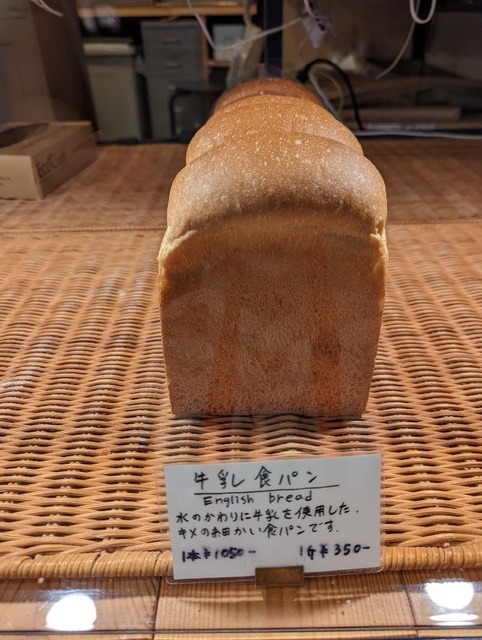 牛乳食パン
English bread
水のかわりに牛乳を使用した、
キメの細かい食パンです。
1本¥1050- 1斤¥350-